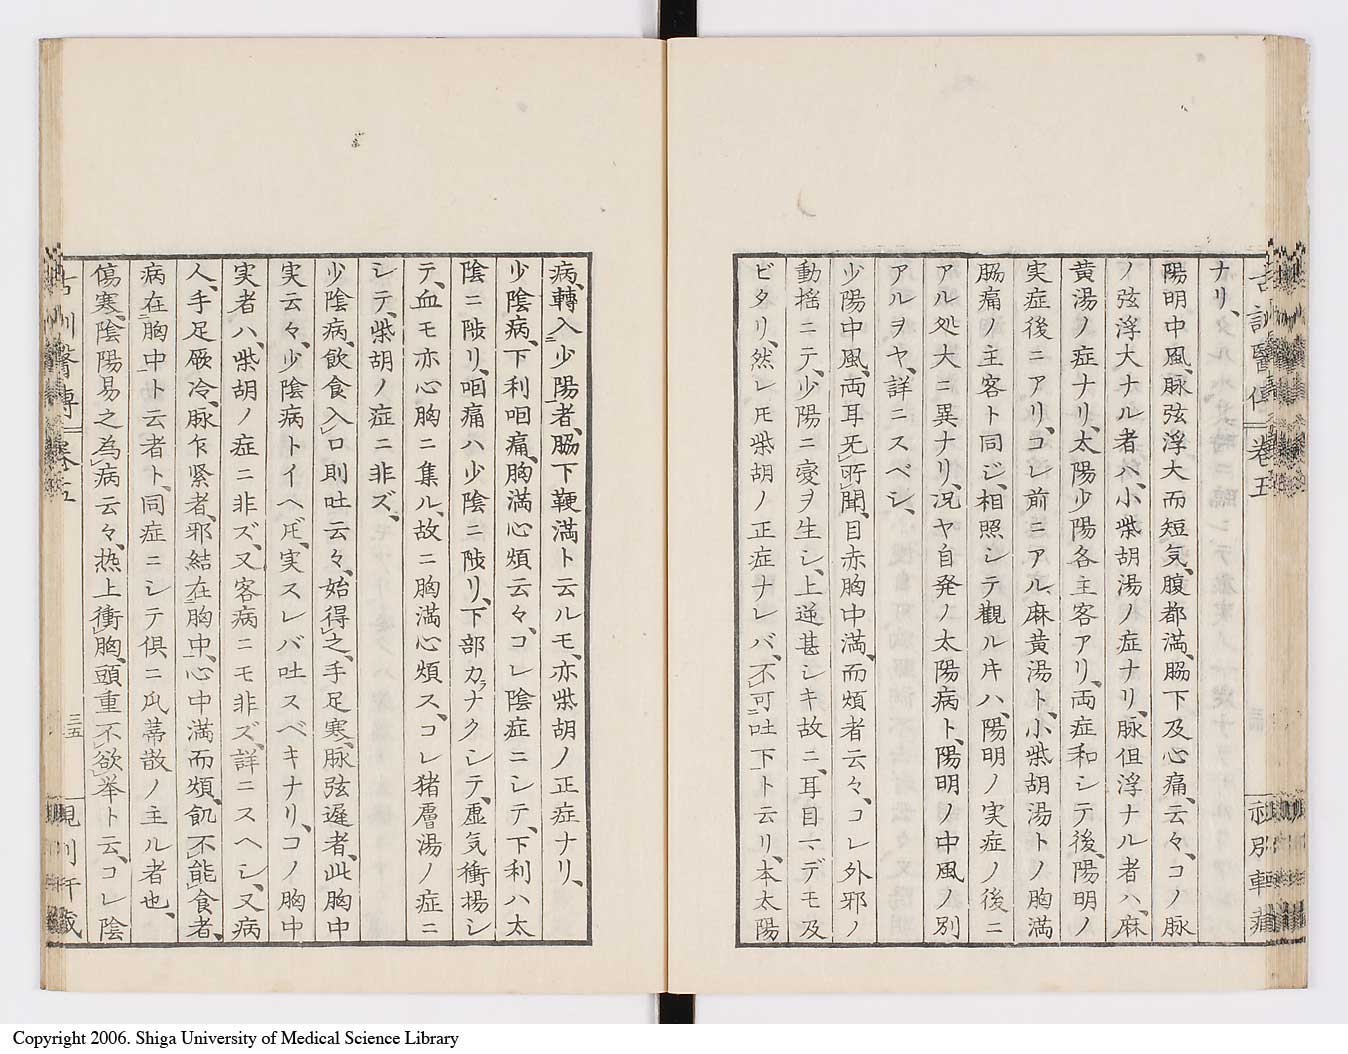 ナリ、
陽明中風、脈弦浮大而短気、腹都満、脇下及心痛、云々、コノ脈
ノ弦浮大ナル者ハ、小柴胡湯ノ症ナリ、脈但浮ナル者ハ、麻
黄湯ノ症ナリ、太陽少陽各主客アリ、両症和シテ後、陽明ノ
実症後ニアリ、コレ前ニアル、麻黄湯ト、小柴胡湯トノ胸満
脇痛ノ主客ト同ジ、相照シテ觀ル片ハ、陽明ノ実症ノ後ニ
アル処大ニ異ナリ、况ヤ自発ノ太陽病ト、陽明ノ中風ノ別
アルヲヤ、詳ニスベシ、
少陽中風、両耳无所聞、目赤胸中満、而煩者云々、コレ外邪ノ
動揺ニテ、少陽ニ変ヲ生シ、上逆甚シキ故ニ、耳目ニデモ及
ビタリ、然レ𪜈柴胡ノ正症ナレバ、不可吐下ト云リ、本太陽
古訓醫傳 卷五
病、轉入少陽者、脇下鞕満ト云ルモ、亦柴胡ノ正症ナリ、
少陰病、下利咽痛、胸満心煩云々、コレ陰症ニシテ、下利ハ太
陰ニ陟リ、咽痛ハ少陰ニ陟リ、下部カラナクシテ、虚気衝揚シ
テ、血モ亦心胸ニ集ル、故ニ胸満心煩ス、コレ猪膚湯ノ症ニ
シテ、柴胡ノ症ニ非ズ、
少陰病、飲食入口則吐云々、始得之、手足寒、脈弦遅者、此胸中
実云々、少陰病トイヘ𪜈、実スレバ吐スベキナリ、コノ胸中
実者ハ、柴胡ノ症ニ非ズ、又客病ニモ非ズ、詳ニスヘシ、又病
人、手足厥冷、脈乍緊者、邪結在胸中、心中満而煩、飢不能食者、
病在胸中ト云者ト、同症ニシテ倶ニ瓜蒂散ノ主ル者也、
傷寒、陰陽易之為病云々、热上衝胸、頭重不欲举ト云、コレ陰
古訓醫傳 卷五
三五
Copyright 2006. Shiga University of Medical Science Library